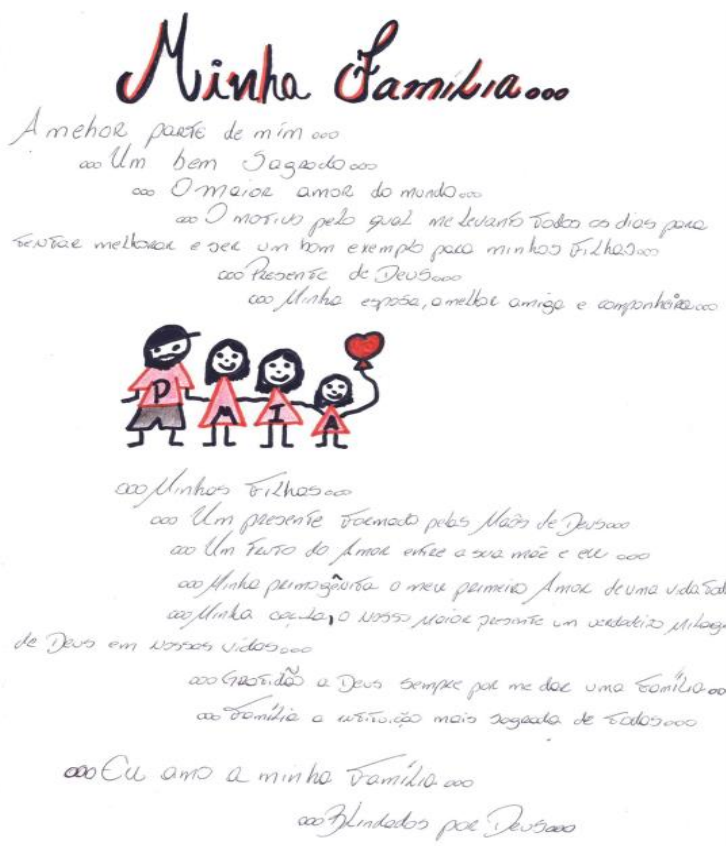 Minha Família...
A mehor parte de mim...
...Um bem Sagrado...
...O maior amor do mundo...
...O motivo pelo qual me levanto todos os dias para
tentar melhorar e ser um bom exemplo para minhas Filhas...
...Presente de Deus...
...Minha esposa, a melhor amiga e companheira...
P M I A
...Minhas Filhas...
...Um presente Formado pelas Mãos de Deus...
...Um Fruto do Amor entre a sua mãe e eu...
...Minha primogênita o meu primeiro Amor de uma vida tod
...Minha caçula, o Nosso Maior presente um verdadeiro Milagr
de Deus em Nossas vidas...
...Gratidão a Deus sempre por me dar uma Família...
...Família a instituição mais sagrada de todas...
...Eu amo a minha Família...
...Blindados por Deus...